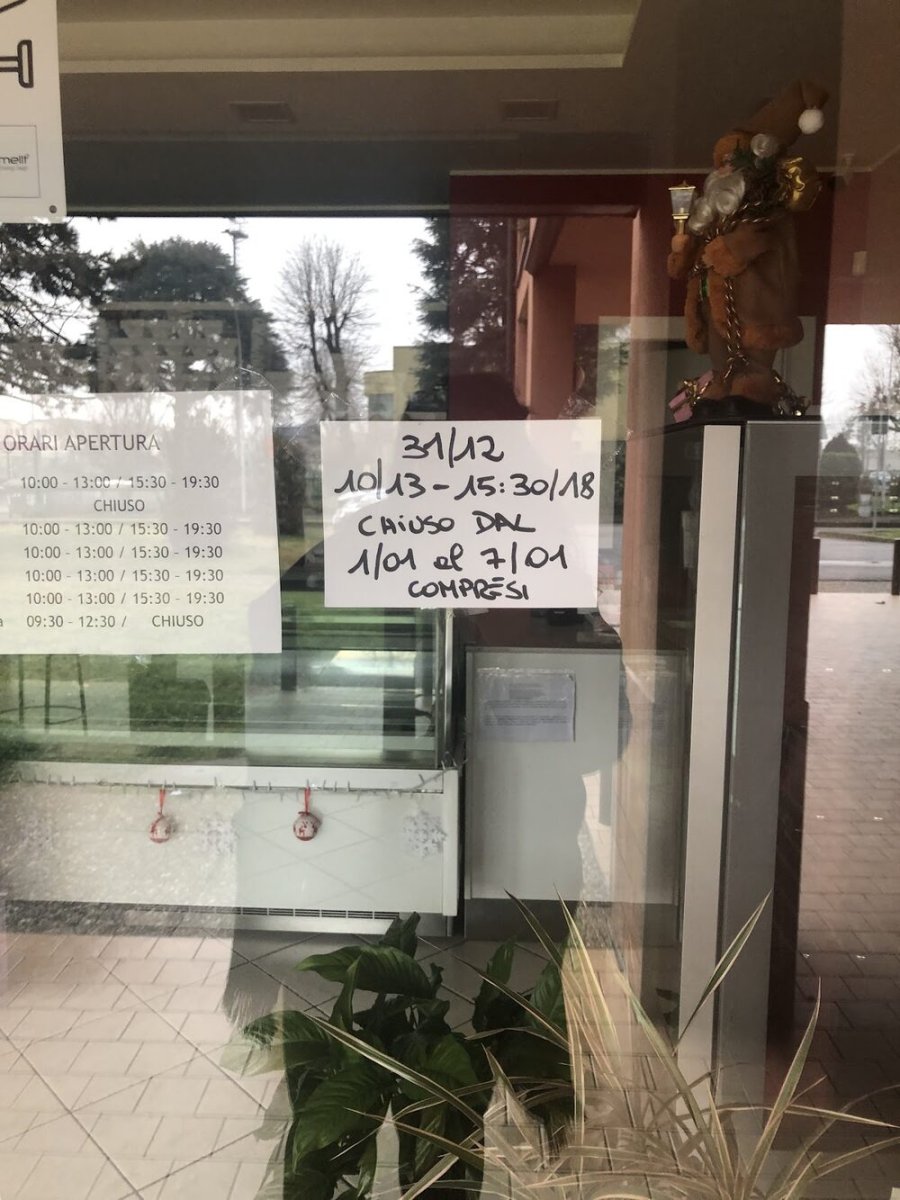 mellt
ORARI APERTURA
10:00 - 13:00 / 15:30 - 19:30
CHIUSO
10:00 - 13:00 / 15:30 - 19:30
10:00 - 13:00 / 15:30 - 19:30
10:00 - 13:00 / 15:30 - 19:30
10:00 - 13:00 / 15:30 - 19:30
09:30 - 12:30 / CHIUSO
31/12
10/13 - 15:30/18
CHiUSO DAL
1/01 al 7/01
COMPRESi